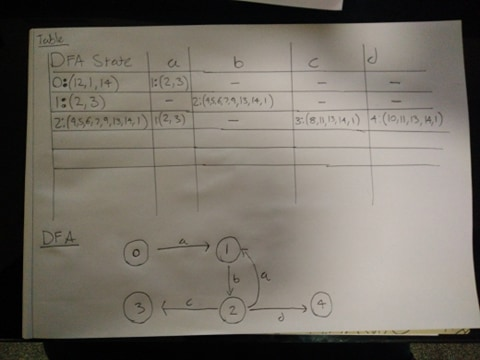 Table
DFA State a b c d
0:(12,1,14) 1:(2,3) - - -
1:(2,3) - 2:(4,5,6,7,9,13,14,1) - -
2:(4,5,6,7,9,13,14,1) 1(2,3) - 3:(8,11,13,14,1) 4:(10,11,13,14,1)
DFA
0 a 1
b a
3 c 2 d 4